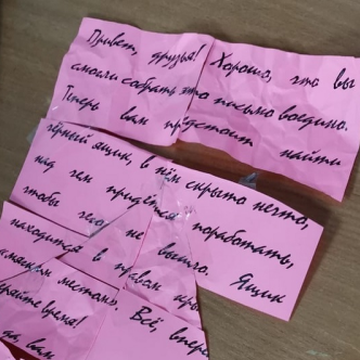 Привет, друзья! Хорошо, что вы
смогли собрать это письмо воедино.
Теперь вам предстоит найти
чёрный ящик, в нём скрыто нечто,
над чем придётся поработать,
чтобы чего не вышло. Ящик
находится в правом
местом. Всё,
время!
вам